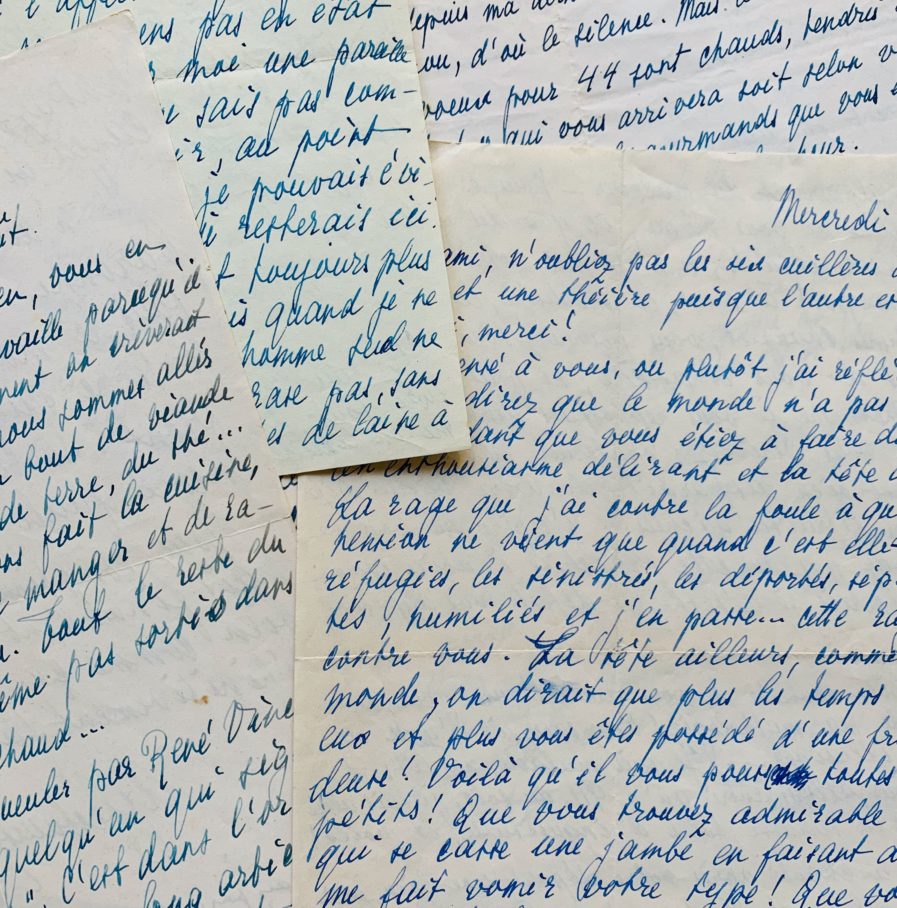 ens pas en état
moi une pareille
sais pas com-
ir, au point
je pouvais évi-
resterais ici.
toujours plus
is quand je ne
homme seul ne
rase pas, sans
es de laine à
depuis ma
ou, d'où le silence. Mais
voeux pour 44 sont chauds, tendres
qui vous arrivera soit selon v
gourmands que vous
heur.
en, vous en
vaille parcequ'il
ment on crèverait
nous sommes allés
bout de viande
de terre, du thé...
ons fait la cuisine,
manger et de ra-
Tout le reste du
ême pas sortis dans
chaud...
ueuler par René
quelqu'un qui sig
" c'est dans l'or
long
Mercredi
ami, n'oubliez pas les six cuillères
et une théière puisque l'autre es
, merci!
ensé à vous, ou plutôt j'ai réflé
direz que le monde n'a pas
dant que vous étiez à faire d
un enthousiasme délirant et la tête a
La rage que j'ai contre la foule à qu
pension ne vient que quand c'est elle-
réfugiés, les sinistrés, les déportés, sép
tés, humiliés et j'en passe... cette ra
contre vous. La tête ailleurs, comme
monde, on dirait que plus les temps
eux et plus vous êtes possédé d'une fr
deuse! Voilà qu'il vous toutes
pétits! Que vous trouvez admirable
qui se casse une jambe en faisant
me fait vomir votre type! Que vo